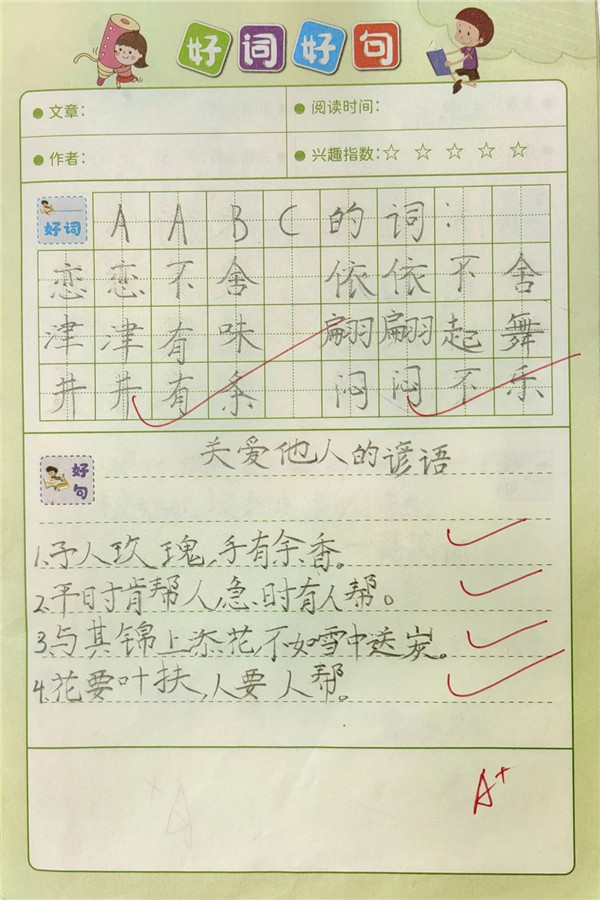 好词好句
文章: 阅读时间:
作者: 兴趣指数:☆ ☆ ☆ ☆ ☆
好词 AABC的词:
恋恋不舍 依依不舍
津津有味 翩翩起舞
井井有条 闷闷不乐
好句 关爱他人的谚语
1.予人玫瑰,手有余香。
2.平时肯帮人,急时有人帮。
3.与其锦上添花,不如雪中送炭。
4.花要叶扶,人要人帮。
A+